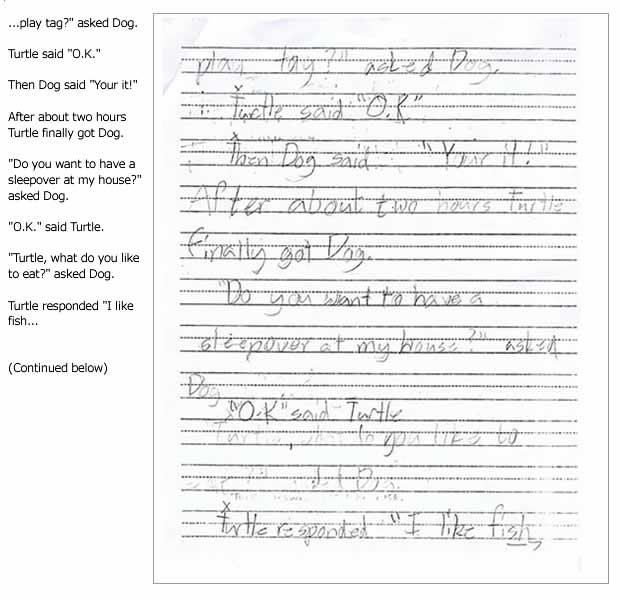 ...play tag?" asked Dog.
Turtle said "O.K."
Then Dog said "Your it!"
After about two hours
Turtle finally got Dog.
"Do you want to have a
sleepover at my house?"
asked Dog.
"O.K." said Turtle.
"Turtle, what do you like
to eat?" asked Dog.
Turtle responded "I like
fish...
(Continued below)
play tag?" asked Dog.
Turtle said "O.K"
Then Dog said "Your it!"
After about two hours Turtle
Finally got Dog.
"Do you want to have a
sleepover at my house?" asked
Dog
"O.K" said Turtle
Turtle, what do you like to
Dog.
Turtle responded "I like fish,